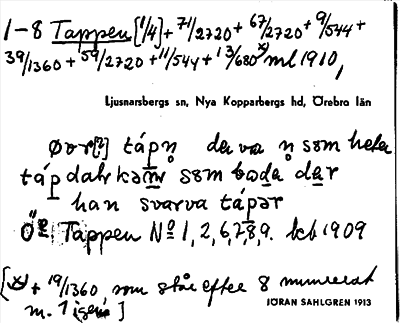 1–8 Tappen [1/4] + 71/2720 + 67/2720 + 9/544 +
39/1360 + 59/2720 + 11/544 + 13/680 x) ml 1910,
Ljusnarsbergs sn, Nya Kopparbergs hd, Örebro län
øvr[?] tápn da va n som heta
táp dahr kam som boda dar
han svarva tápar
Ö Tappen No 1, 2, 6, 7, 8, 9. bcb 1909
[x) + 19/1360 som står efter 8 numrerat
m. 1 igen]
JÖRAN SAHLGREN 1913